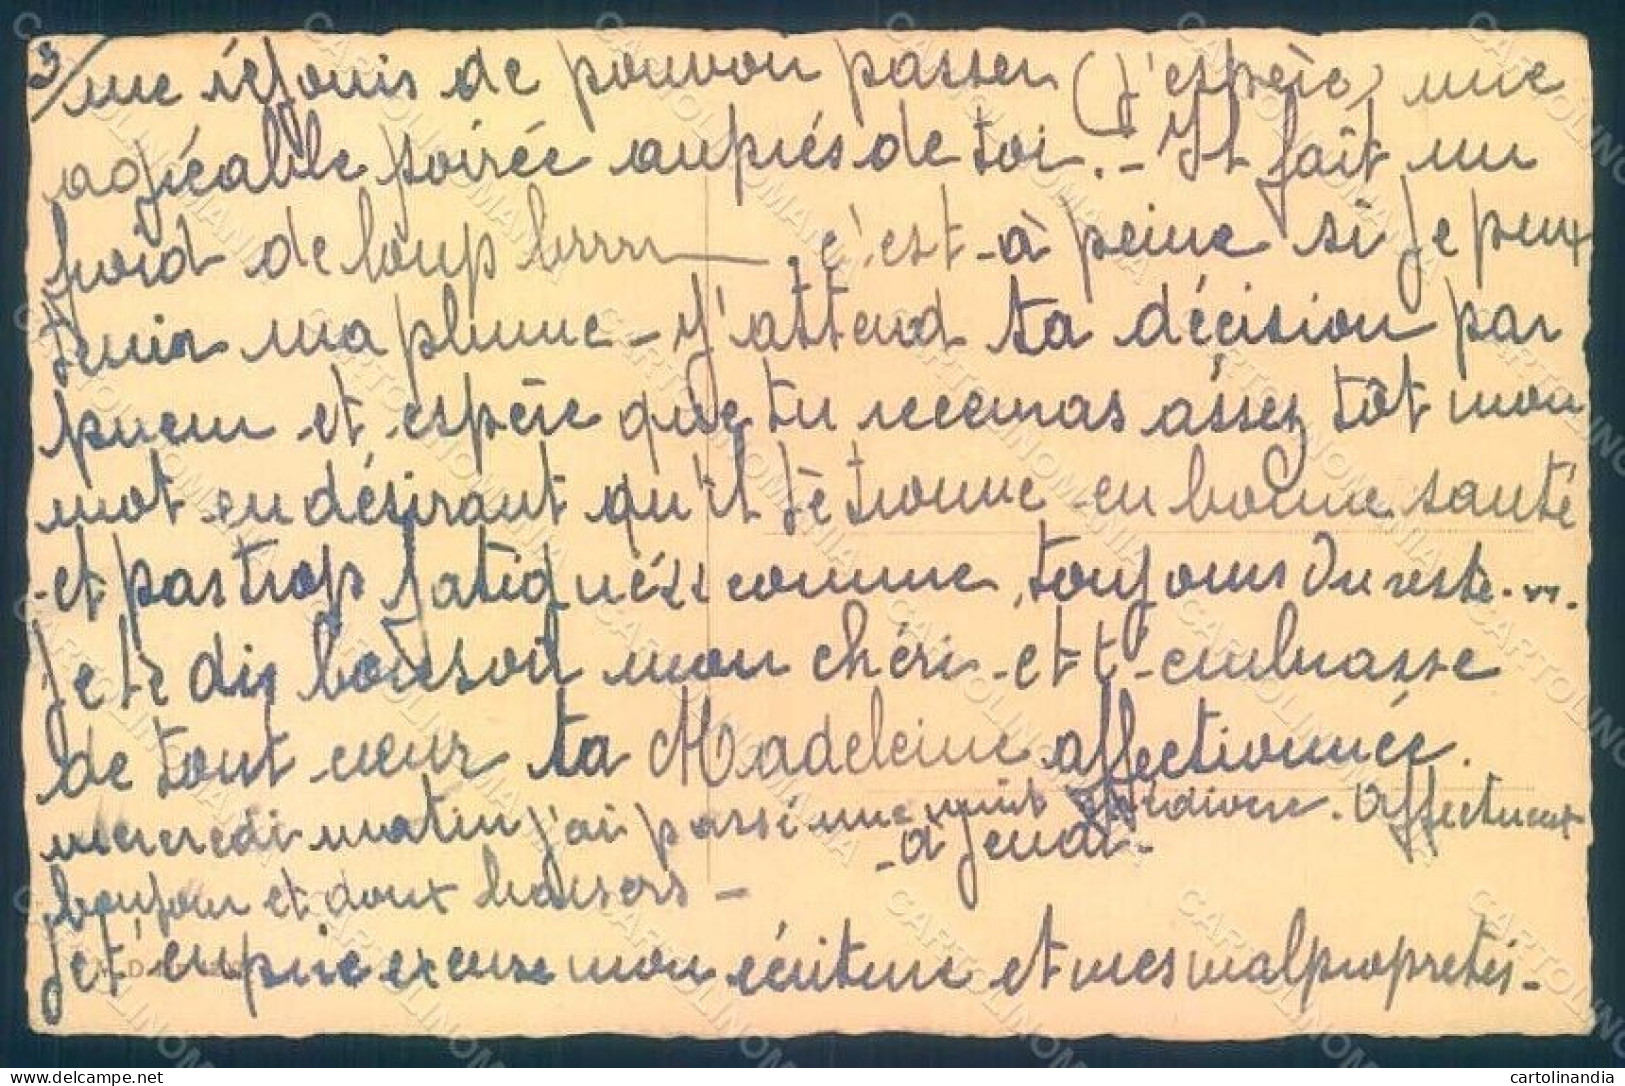 3
me réjouis de pouvoir passer (j'espère) une
agréable soirée auprés de toi. - Il fait un
froid de loup brrrr . c'est - à peine si je peux
tenir ma plume - J'attend ta décision par
pneu et espère que tu recevras assez tôt mon
mot en désirant qu'il te trouve en bonne santé
et pas trop fatigué comme toujours du reste...
Je te dis bonsoir mon chéri - et t'embrasse
de tout cœur ta Madeleine affectionnée.
mercredi matin j'ai passé une nuit . Affectueux
- à -
bonjour et doux baisers -
Je t'en prie excuse mon écriture et mes malpropretés -
CARTOLINOMANIA
cartolinandia
www.delcampe.net